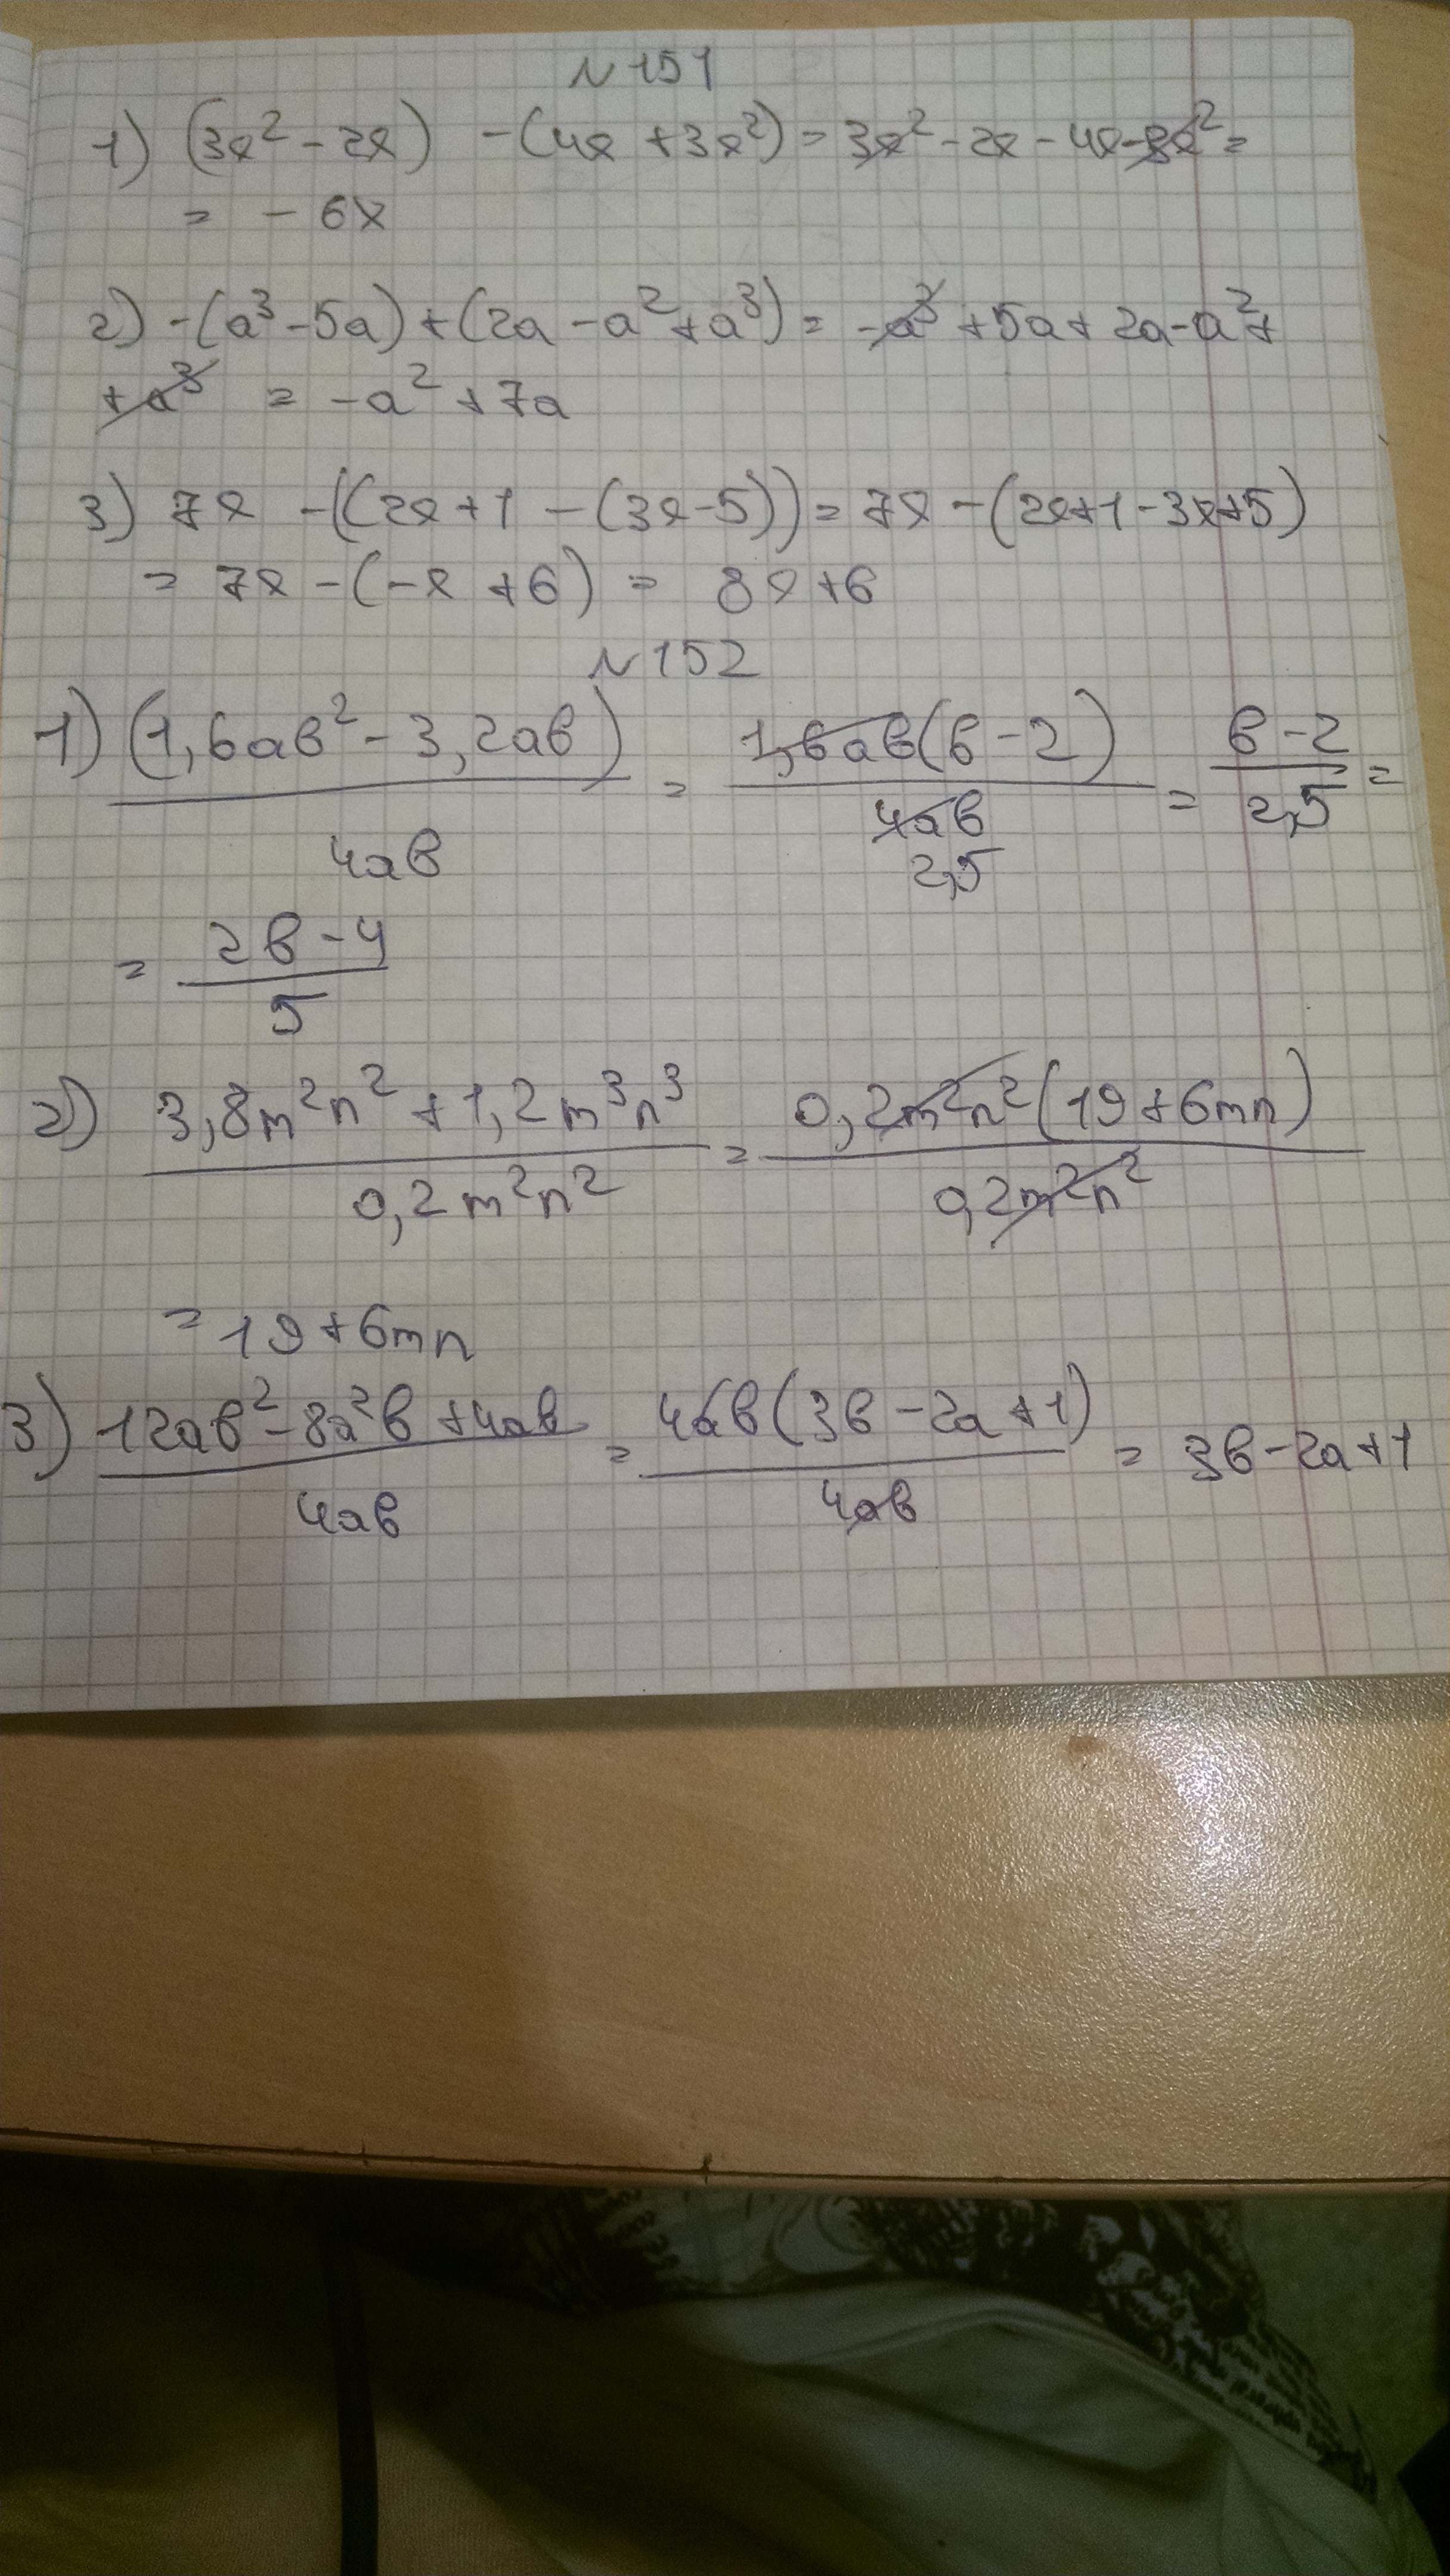 N 151
1) (3x² - 2x) - (4x + 3x²) = 3x² - 2x - 4x - 3x² =
= - 6x
2) -(a³ - 5a) + (2a - a² + a³) = -a³ + 5a + 2a - a² +
+ a³ = -a² + 7a
3) 7x - ((2x + 1 - (3x - 5)) = 7x - (2x + 1 - 3x + 5)
= 7x - (-x + 6) = 8x + 6
N 152
1) (1,6ав² - 3,2ав) / 4ав = 1,6ав(в - 2) / 4ав 2,5 = в - 2 / 2,5 =
= 2в - 4 / 5
2) 3,8m²n² + 1,2m³n³ / 0,2m²n² = 0,2m²n²(19 + 6mn) / 0,2m²n²
= 19 + 6mn
3) 12ав² - 8а²в + 4ав / 4ав = 4ав(3в - 2а + 1) / 4ав = 3в - 2а + 1